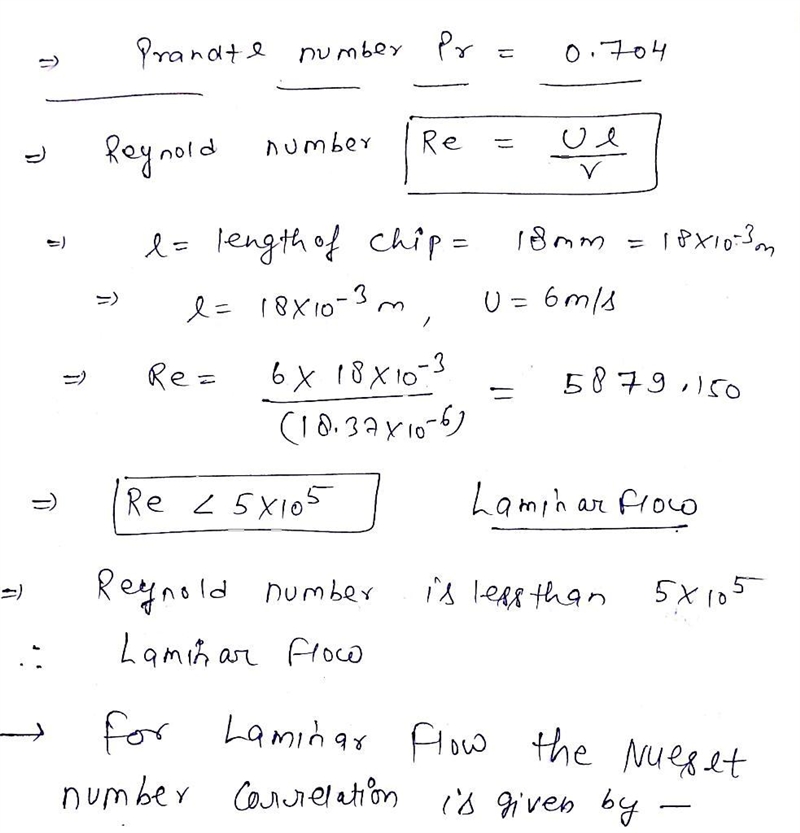 ⇒ Prandtl number Pr = 0.704
⇒ Reynold number Re = Ul/ν
⇒ l = length of chip = 18mm = 18×10-3m
⇒ l = 18×10-3 m, U = 6m/s
⇒ Re = 6 × 18×10-3 / (18.37×10-6) = 5879.150
⇒ Re < 5×105 Laminar flow
⇒ Reynold number is less than 5×105
∴ Laminar flow
→ for Laminar Flow the Nueselt
number Correlation is given by —